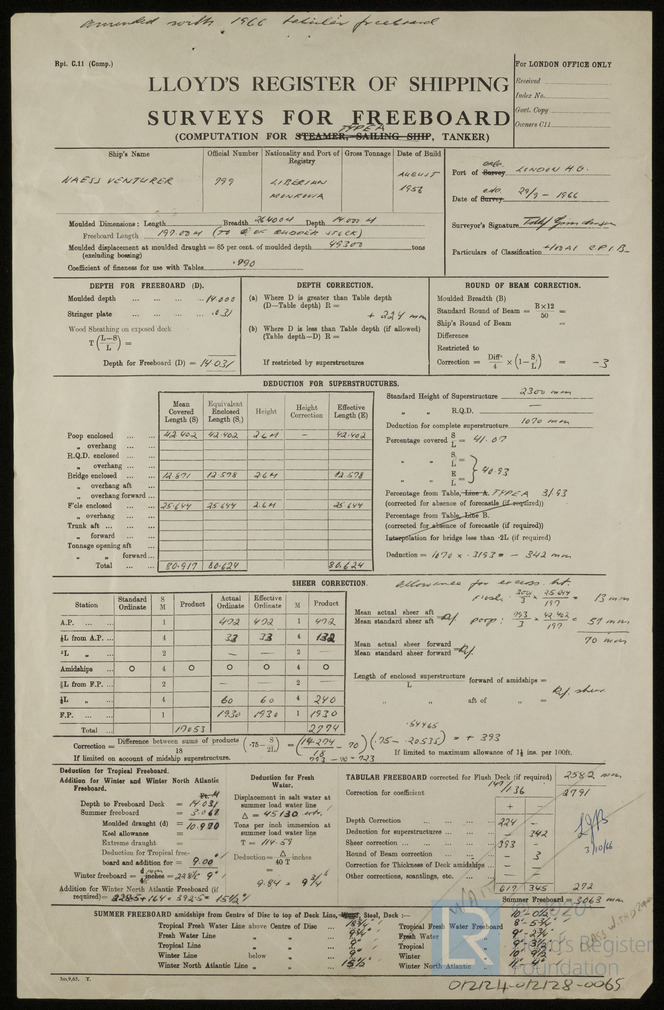 Amended with 1966 tabular freeboard
Rpt. C.11 (Comp.)
For LONDON OFFICE ONLY
Received
Index No.
Govt. Copy
Owners C11
LLOYD'S REGISTER OF SHIPPING
SURVEYS FOR FREEBOARD
TYPE A
(COMPUTATION FOR STEAMER, SAILING SHIP, TANKER)
Ship's Name
Official Number
Nationality and Port of Registry
Gross Tonnage
Date of Build
NAESS VENTURER
799
LIBERIAN
MONROVIA
AUGUST
1956
Port of Survey LONDON H.O.
Date of Survey 29/9 - 1966
Surveyor's Signature
Particulars of Classification +100A1
Moulded Dimensions: Length Breadth 26.400 M Depth 14.000 M
Freeboard Length 197.00 M (TO ₵ OF RUDDER STOCK)
Moulded displacement at moulded draught = 85 per cent. of moulded depth 49300 tons
(excluding bossing)
Coefficient of fineness for use with Tables .790
DEPTH FOR FREEBOARD (D).
Moulded depth 14.000
Stringer plate .031
Wood Sheathing on exposed deck
T (L-S/L) =
Depth for Freeboard (D) = 14.031
DEPTH CORRECTION.
(a) Where D is greater than Table depth
(D—Table depth) R =
+ 224 mm
(b) Where D is less than Table depth (if allowed)
(Table depth—D) R =
If restricted by superstructures
ROUND OF BEAM CORRECTION.
Moulded Breadth (B)
Standard Round of Beam = B×12/50 =
Ship's Round of Beam =
Difference
Restricted to
Correction = Diff/4 × (1 - S/L) = -3
DEDUCTION FOR SUPERSTRUCTURES.
Mean Covered Length (S)
Equivalent Enclosed Length (S.)
Height
Height Correction
Effective Length (E)
Poop enclosed 42.402 42.402 2.6M - 42.402
„ overhang
R.Q.D. enclosed
„ overhang
Bridge enclosed 12.871 12.578 2.6M 12.578
„ overhang aft
„ overhang forward
F'cle enclosed 25.644 25.644 2.6M 25.644
„ overhang
Trunk aft
„ forward
Tonnage opening aft
„ „ forward
Total 80.917 80.624 80.624
Standard Height of Superstructure 2300 mm
„ „ R.Q.D. —
Deduction for complete superstructure 1070 mm
Percentage covered S/L = 41.07
„ „ S₁/L =
„ „ E/L = } 40.93
Percentage from Table, Line A. TYPE A 31.93
(corrected for absence of forecastle (if required))
Percentage from Table, Line B.
(corrected for absence of forecastle (if required))
Interpolation for bridge less than ·2L (if required)
Deduction = 1070 × .3193 = - 342 mm
SHEER CORRECTION.
Station
Standard Ordinate
S M
Product
Actual Ordinate
Effective Ordinate
M
Product
A.P. 1 472 472 1 472
⅙L from A.P. 4 33 33 4 132
⅓L „ 2 — — 2 —
Amidships 0 4 0 0 0 4 0
⅓L from F.P. 2 — — 2 —
⅙L „ 4 60 60 4 240
F.P. 1 1930 1930 1 1930
Total 17053 2774
allowance for excess ht.
Mean actual sheer aft
Mean standard sheer aft =
Mean actual sheer forward
Mean standard sheer forward =
13 mm
poop:
57 mm
70 mm
Length of enclosed superstructure/L forward of amidships =
„ „ aft of „ =
Correction = Difference between sums of products/18 (·75 - S/2L) = (14279/18 - 70)(.75 - .20535) = + 393
.54465
793 - 70 = 723
If limited on account of midship superstructure.
If limited to maximum allowance of 1½ ins. per 100ft.
Deduction for Tropical Freeboard.
Addition for Winter and Winter North Atlantic Freeboard.
Depth to Freeboard Deck = 14.031
Summer freeboard = 3.061
Moulded draught (d) = 10.970
Keel allowance =
Extreme draught =
Deduction for Tropical freeboard and addition for = 9.00"
Winter freeboard = 9"
Addition for Winter North Atlantic Freeboard (if required) = 228.5 + 164 = 392.5 = 15½"
Deduction for Fresh Water.
Displacement in salt water at summer load water line
Δ = 45130
Tons per inch immersion at summer load water line
T = 114.59
Deduction = Δ/40 T inches
= 9.84 = 9¾"
TABULAR FREEBOARD corrected for Flush Deck (if required) 2582 mm
Correction for coefficient
2791
+ -
Depth Correction 224 —
Deduction for superstructures — 342
Sheer correction 393 —
Round of Beam correction — 3
Correction for Thickness of Deck amidships — —
Other corrections, scantlings, etc.
617 345 272
Summer Freeboard = 3063 mm
3/10/66
SUMMER FREEBOARD amidships from Centre of Disc to top of Deck Line, Wood, Steel, Deck :—
Tropical Fresh Water Line above Centre of Disc
Fresh Water Line „ „
Tropical Line „ „ 9"
Winter Line below „ 9"
Winter North Atlantic Line „ „ 15½"
10'-0½"
Tropical Fresh Water Freeboard
Fresh Water „ 9'-2¾"
Tropical „ 9'-3½"
Winter „ 10'-9½"
Winter North Atlantic „ 11'-4"
3m,9,63. T.
© 2020
Lloyd's Register
Foundation
012124-012128-0065